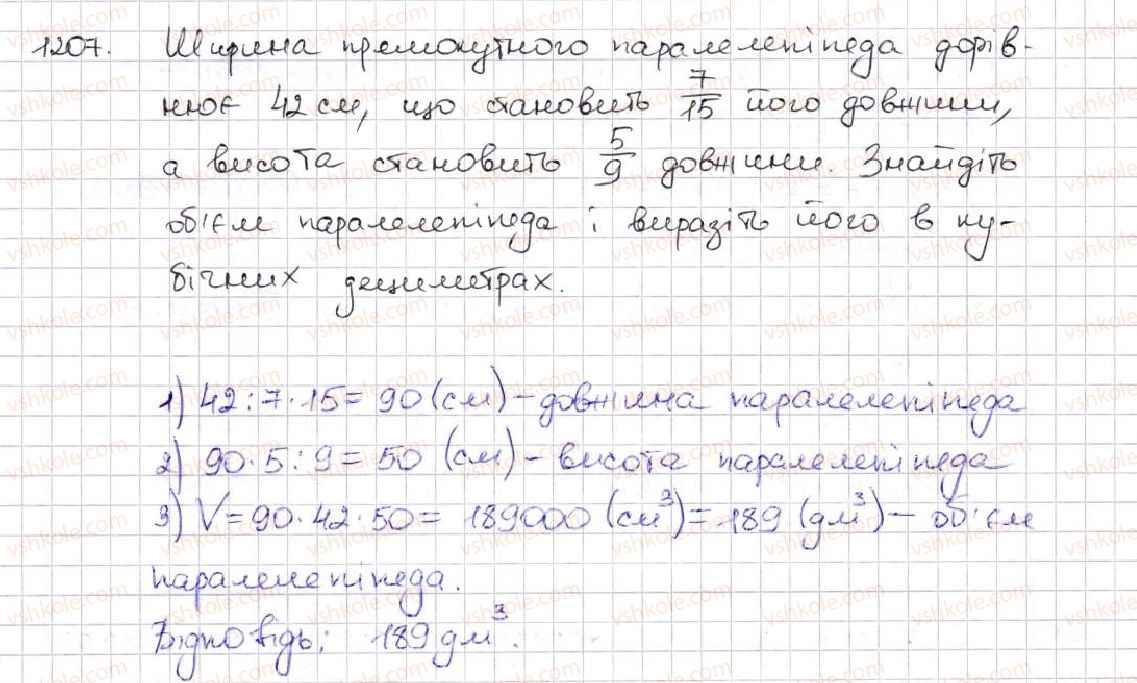 1207. Ширина прямокутного паралелепіпеда дорів-
нює 42 см, що становить 7/15 його довжини,
а висота становить 5/9 довжини. Знайдіть
об'єм паралелепіпеда і виразіть його в ку-
бічних дециметрах.
1) 42:7·15=90 (см) – довжина паралелепіпеда
2) 90·5:9=50 (см) – висота паралелепіпеда
3) V=90·42·50=189000 (см³)=189 (дм³) – об'єм
паралелепіпеда.
Відповідь: 189 дм³.